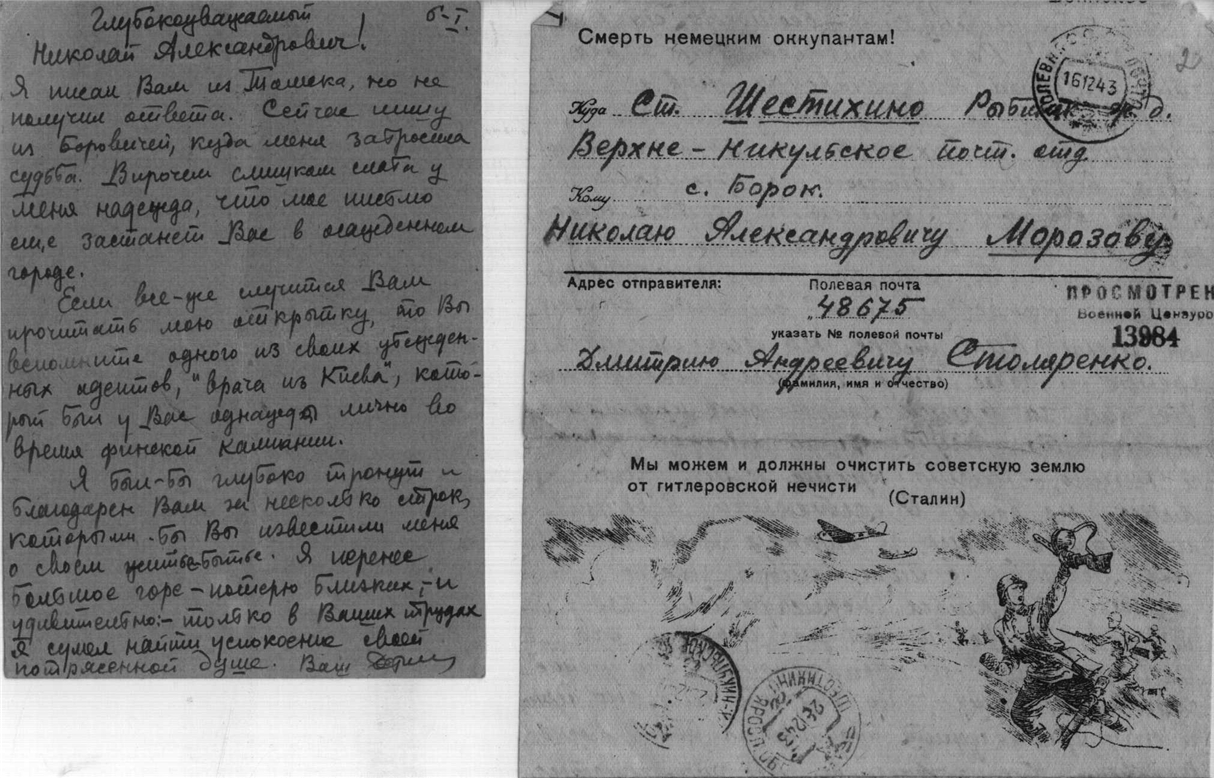 Глубокоуважаемый 6-I.
Николай Александрович!
Я писал Вам из Томска, но не
получил ответа. Сейчас пишу
из Боровичей, куда меня забросила
судьба. Впрочем слишком слаба у
меня надежда, что мое письмо
еще застанет Вас в осажденном
городе.
Если все-же случится Вам
прочитать мою открытку, то Вы
вспомните одного из своих убежден-
ных адептов, "врача из Киева", кото-
рый был у Вас однажды лично во
время финской кампании.
Я был-бы глубоко тронут и
благодарен Вам за несколько строк,
которыми-бы Вы известили меня
о своем житье-бытье. Я перенес
большое горе - потерю близких, - и
удивительно: - только в Ваших трудах
я сумел найти успокоение своей
потрясенной душе. Ваш
Смерть немецким оккупантам!
2
ПОЛЕВАЯ ПОЧТА
161243
Куда Ст. Шестихино Рыбинск ж.д.
Верхне-Никульское почт. отд.
с. Борок.
Кому
Николаю Александровичу Морозову
Адрес отправителя: Полевая почта
48675
указать № полевой почты
ПРОСМОТРЕН
Военной Цензурой
13984
Дмитрию Андреевичу Столяренко.
(фамилия, имя и отчество)
Мы можем и должны очистить советскую землю
от гитлеровской нечисти
(Сталин)
ШЕСТИХИНО ЯРОСЛ